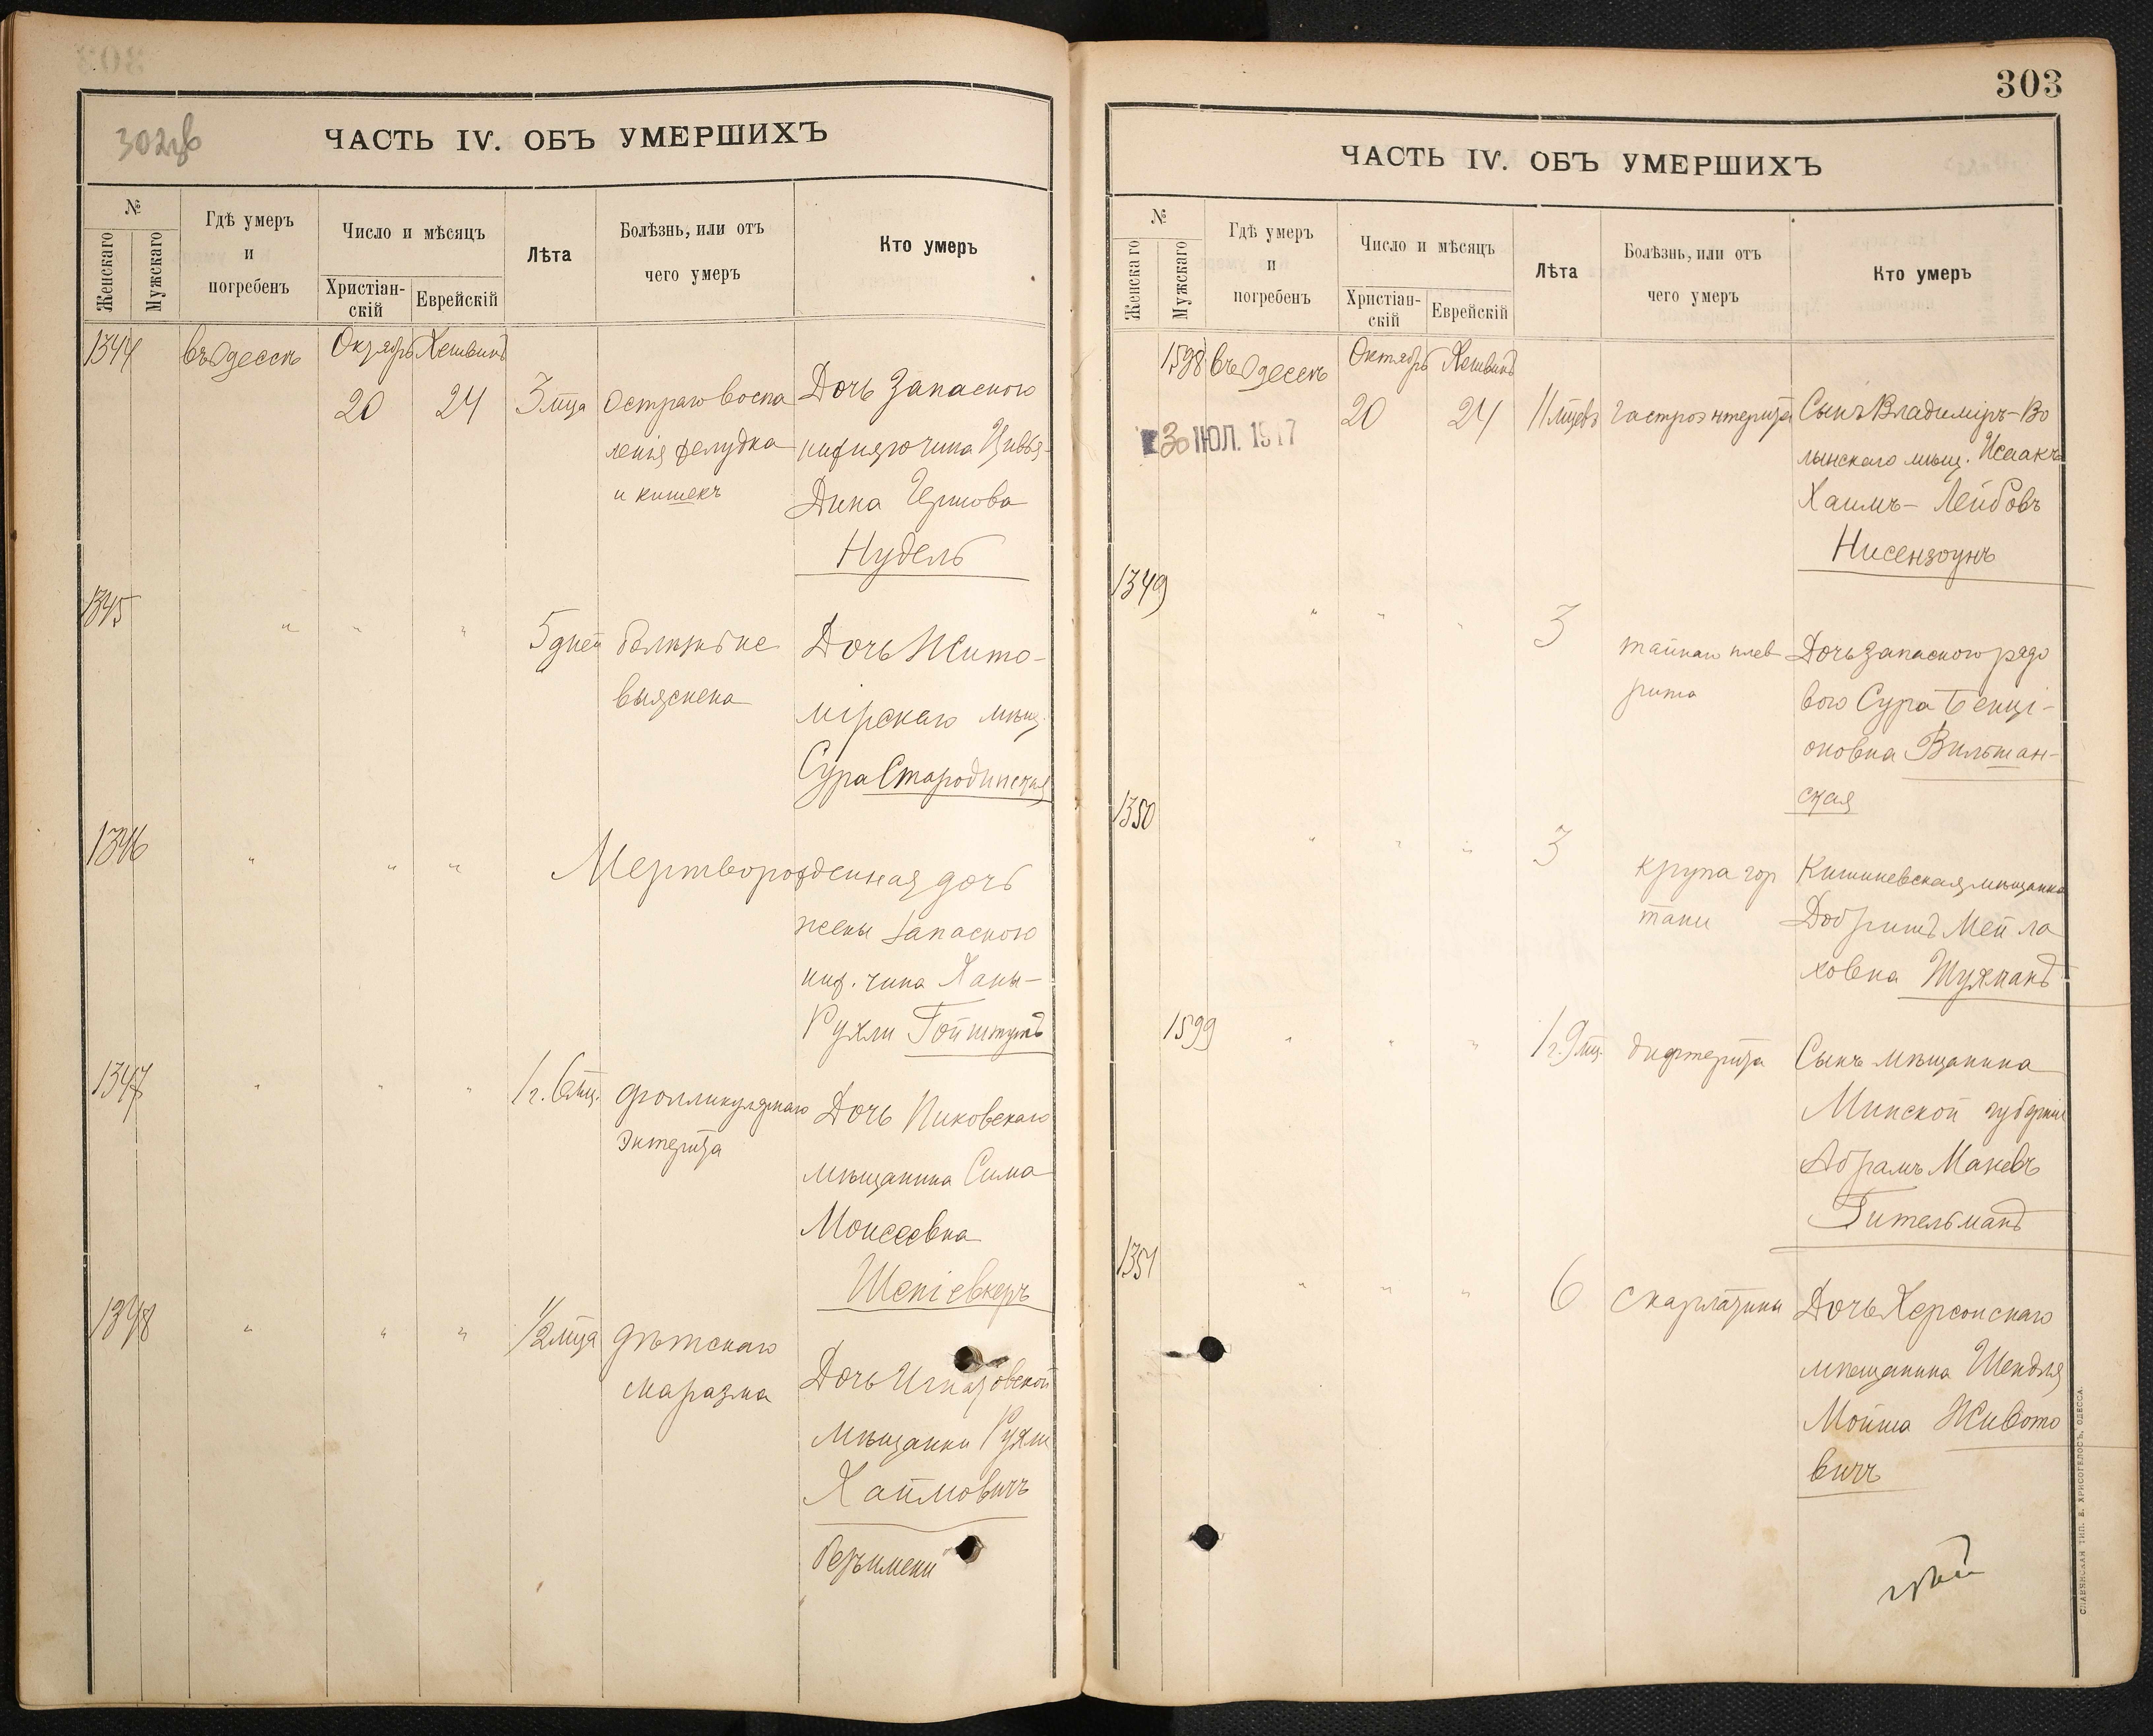 302об
ЧАСТЬ IV. ОБЪ УМЕРШИХЪ
№
Женскаго
Мужскаго
Гдѣ умеръ
и
погребенъ
Число и мѣсяцъ
Христіан-
скій
Еврейскій
Лѣта
Болѣзнь, или отъ
чего умеръ
Кто умеръ
1344
въ Одессѣ
Октябрь
Хешвинъ
20
24
3 м-ца
Остраго воспа
ленія желудка
и кишекъ
Дочь Запасного
нижняго чина Цивья-
Дина Гершова
Нудель
1345
" " "
5 дней
болѣзнь не
выяснена
Дочь Жито-
мірскаго мѣщ.
Сура Стародинская
1346
" " "
Мертворожденная дочь
жены запасного
ниж. чина Ханы-
Рухли Гойштукъ
1347
" " "
1 г. 6 мц.
Фолликулярнаго
Энтерита
Дочь Пиковскаго
мѣщанина Сима
Моисеевна
Шепіевкеръ
1348
" " "
1/2 м-ца
Дѣтскаго
маразма
Дочь
мѣщанки Рухли
Хаймовичъ
Безъ имени
303
ЧАСТЬ IV. ОБЪ УМЕРШИХЪ
№
Женскаго
Мужскаго
Гдѣ умеръ
и
погребенъ
Число и мѣсяцъ
Христіан-
скій
Еврейскій
Лѣта
Болѣзнь, или отъ
чего умеръ
Кто умеръ
1598
въ Одессѣ
Октябрь
Хешвинъ
20
24
11 м-цевъ
гастроэнтерита
Сынъ Владиміръ-Во
лынскаго мѣщ. Исаакъ
Хаимъ-Лейбовъ
Нисензоунъ
30 ІЮЛ. 1917
1349
" " "
3
тайнаго плев
рита
Дочь запасного рядо
вого Сура Бенці-
оновна Вильшан-
ская
1350
" " "
3
крупа гор
тани
Кишиневская мѣщанка
Добришъ Мей ла
ховна Шухманъ
1599
" " "
1 г. 9 мц.
дифтерита
Сынъ мѣщанина
Минской губерніи
Абрамъ Маневъ
Гительманъ
1351
" " "
6
скарлатины
Дочь Херсонскаго
мѣщанина Шендля
Мойша Живото
вичъ
СЛАВЯНСКАЯ ТИП. Е. ХРИСОГЕЛОСЪ, ОДЕССА.